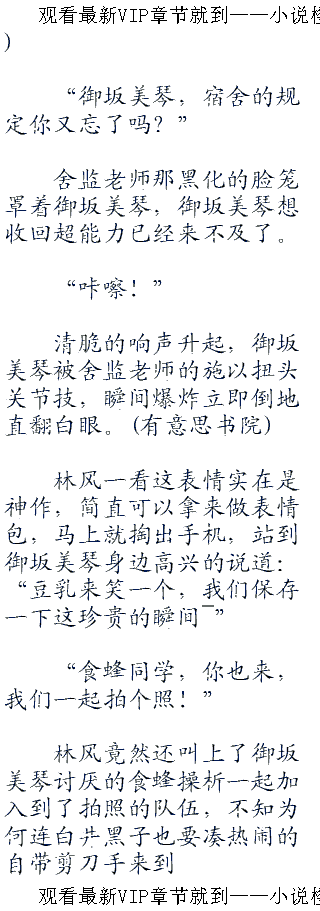 观看最新VIP章节就到——小说
)
“御坂美琴，宿舍的规
定你又忘了吗？”
舍监老师那黑化的脸笼
罩着御坂美琴，御坂美琴想
收回超能力已经来不及了。
“咔嚓！”
清脆的响声升起，御坂
美琴被舍监老师的施以扭头
关节技，瞬间爆炸立即倒地
直翻白眼。(有意思书院)
林风一看这表情实在是
神作，简直可以拿来做表情
包，马上就掏出手机，站到
御坂美琴身边高兴的说道：
“豆乳来笑一个，我们保存
一下这珍贵的瞬间~”
“食蜂同学，你也来，
我们一起拍个照！”
林风竟然还叫上了御坂
美琴讨厌的食蜂操析一起加
入到了拍照的队伍，不知为
何连白井黑子也要凑热闹的
自带剪刀手来到
观看最新VIP章节就到——小说